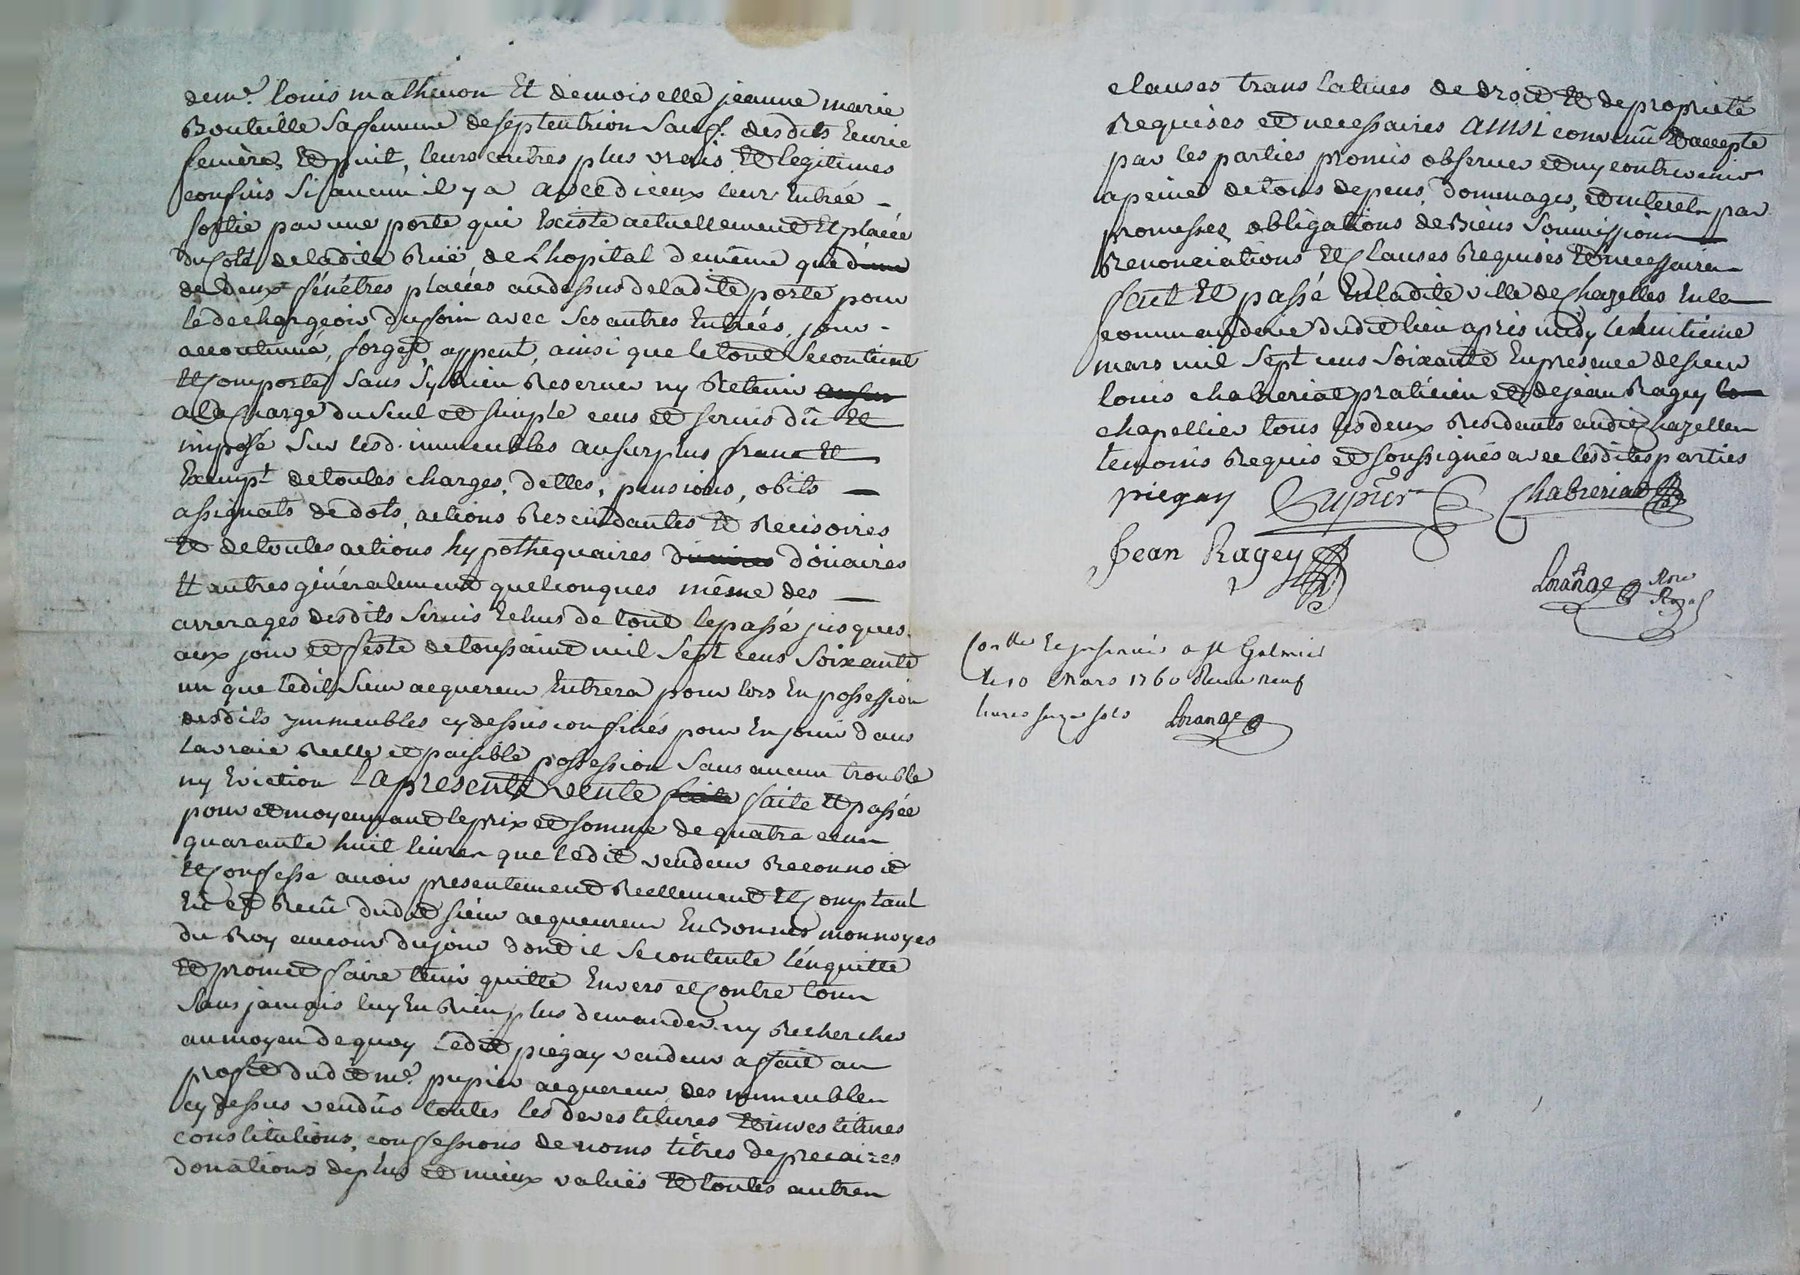 de mr. louis mathevon Et demoiselle jeanne marie
Bouteille sa femme de septentrion sauf. desdits Ecurie
feniere, Et puit, leurs autres plus vrais Et legitimes
confins si aucun il y a avec d'iceux leur Entrée
sortie par une porte qui Existe actuellement Et placée
du Coté de ladite Ruë de L'hopital de même que
de deux fénétres placées au dessus de ladite porte pour
le dechargeoir du foin avec ses autres Entrées, jour
accoutumé, forget, appent, ainsi que le tout se contient
Et Comporte sans s'y Rien Reserver ny Retenir
a la Charge du seul et simple cens et servis dû Et
imposé sur lesd. immeubles au surplus franc Et
Exempt. de toutes charges, dettes, pensions, obits
assignats de dots, actions Rescindantes Et Recisoires
Et de toutes actions hypothequaires doüaires
Et autres généralement quelconques même des
arrerages desdits servis Echus de tout le passé jusques
aux jour et feste de toussaint mil sept cens soixante
un que ledit sieur acquereur Entrera pour lors En possession
desdits ymmeubles cy dessus confinés pour En jouir dans
la vraie Reelle et paisible possession sans aucun trouble
ny Eviction La presente vente faite Et passée
pour et moyennant le prix et somme de quatre cens
quarante huit livres que ledit vendeur Reconnoit
Et Confesse avoir presentement Reellement Et Comptant
Eu et Reçû dudit sieur acquereur En Bonnes monnoyes
du Roy aucour du jour dont il se contente l'enquitte
Et promet faire tenir quitte Envers et Contre tous
sans jamais luy En Rien plus demander ny Rechercher
au moyen de quoy Ledit piegay vendeur a fait au
profit dudit mr. pupier acquereur des immeubles
cy dessus vendûs toutes les devestitures Et investitures
constitutions, confessions de noms titres de precaires
donations de plus et mieux valuë Et toutes autres
clauses translatives de droit Et de proprieté
Requises et necessaires AINSI convenu Et accepté
par les parties promis observer et ny contrevenir
a peine de tous depens, dommages, et interets par
promesses, obligations de Biens soumissions
Renonciations Et Clauses Requises Et necessaires
fait Et passé En ladite ville de Chazelles En la
commanderie dudit lieu apres midy le huitieme
mars mil sept cens soixante En presence de sieur
louis chabreriat praticien et de jean Ragey
chapellier tous les deux Residents audit Chazelles
temoins Requis et soussignés avec lesdites parties
piegay Pupier Chabreriat
Jean Ragey
Lorange Nore
Royal
Conlle a st Galmier
le 10 Mars 1760 neuf
livres sols Lorange